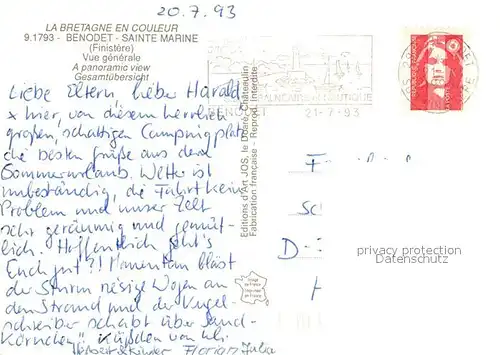 20.7.93
LA BRETAGNE EN COULEUR
9.1793 - BENODET - SAINTE MARINE
(Finistère)
Vue générale
A panoramic view
Gesamtübersicht
Liebe Eltern, lieber Harald
x hier, von diesem herrlich
großen, schattigen Campingplatz
die besten Grüße aus dem
Sommerurlaub. Wetter ist
unbeständig, die Fahrt kein
Problem und unser Zelt
sehr geräumig und gemüt-
lich. Hoffentlich geht's
Euch gut?! Momentan bläst
der Sturm riesige Wogen an
den Strand und der Kugel-
schreiber schabt über Sand-
Körnchen!! Küßchen von Uli
Herbert & Kinder Florian Julia
Editions d'Art JOS, le Doaré, Châteaulin
Fabrication française - Reproduction interdite
BENODET
21-7-93
REPUBLIQUE FRANÇAISE
F
Sc
D
privacy protection
Datenschutz